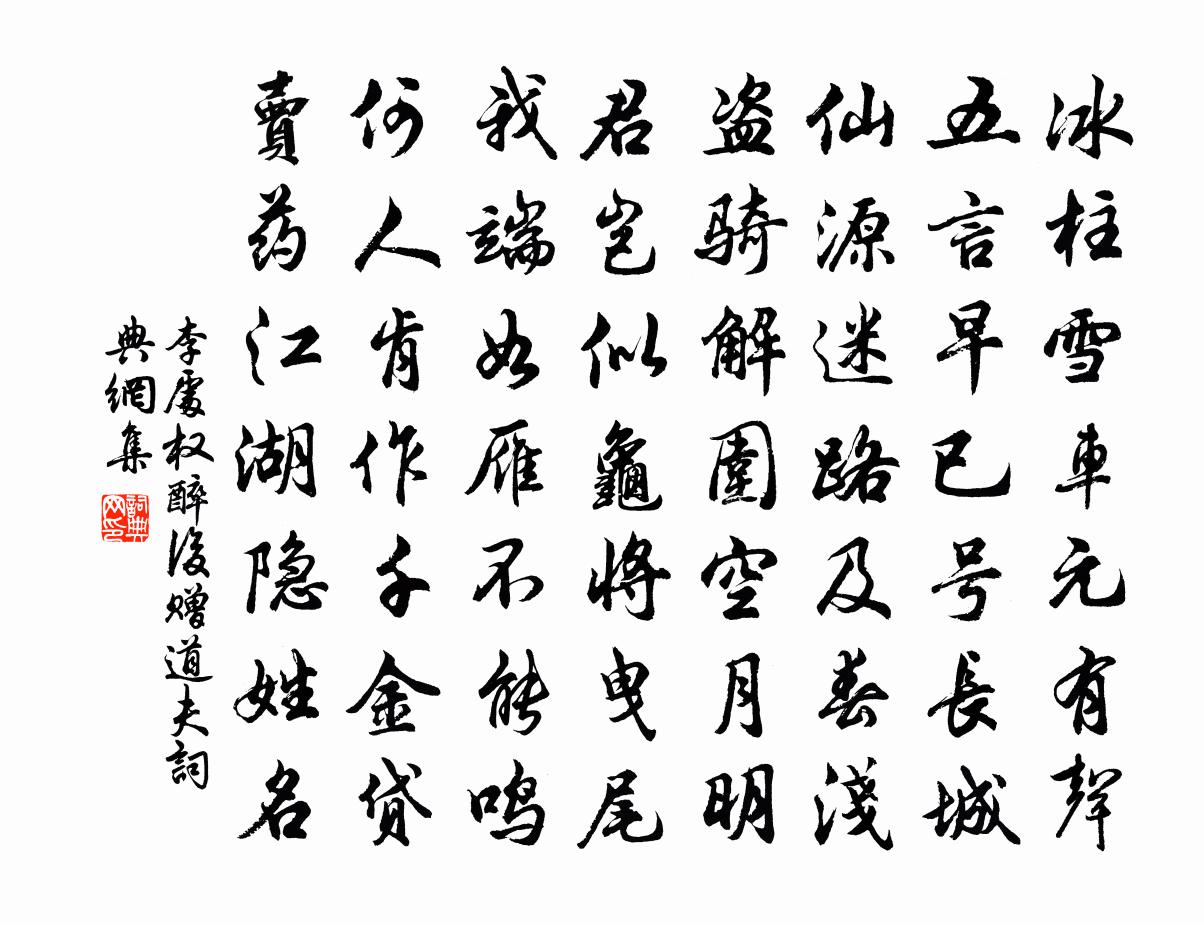 冰柱雪車元有聲
五言早已号長城
仙源迷路及春淺
盗骑解圍空月明
君豈似龜將曳尾
我端如雁不能鸣
何人肯作千金貸
賣药江湖隐姓名
李處权醉後赠道夫詞
典網集
詞典网印